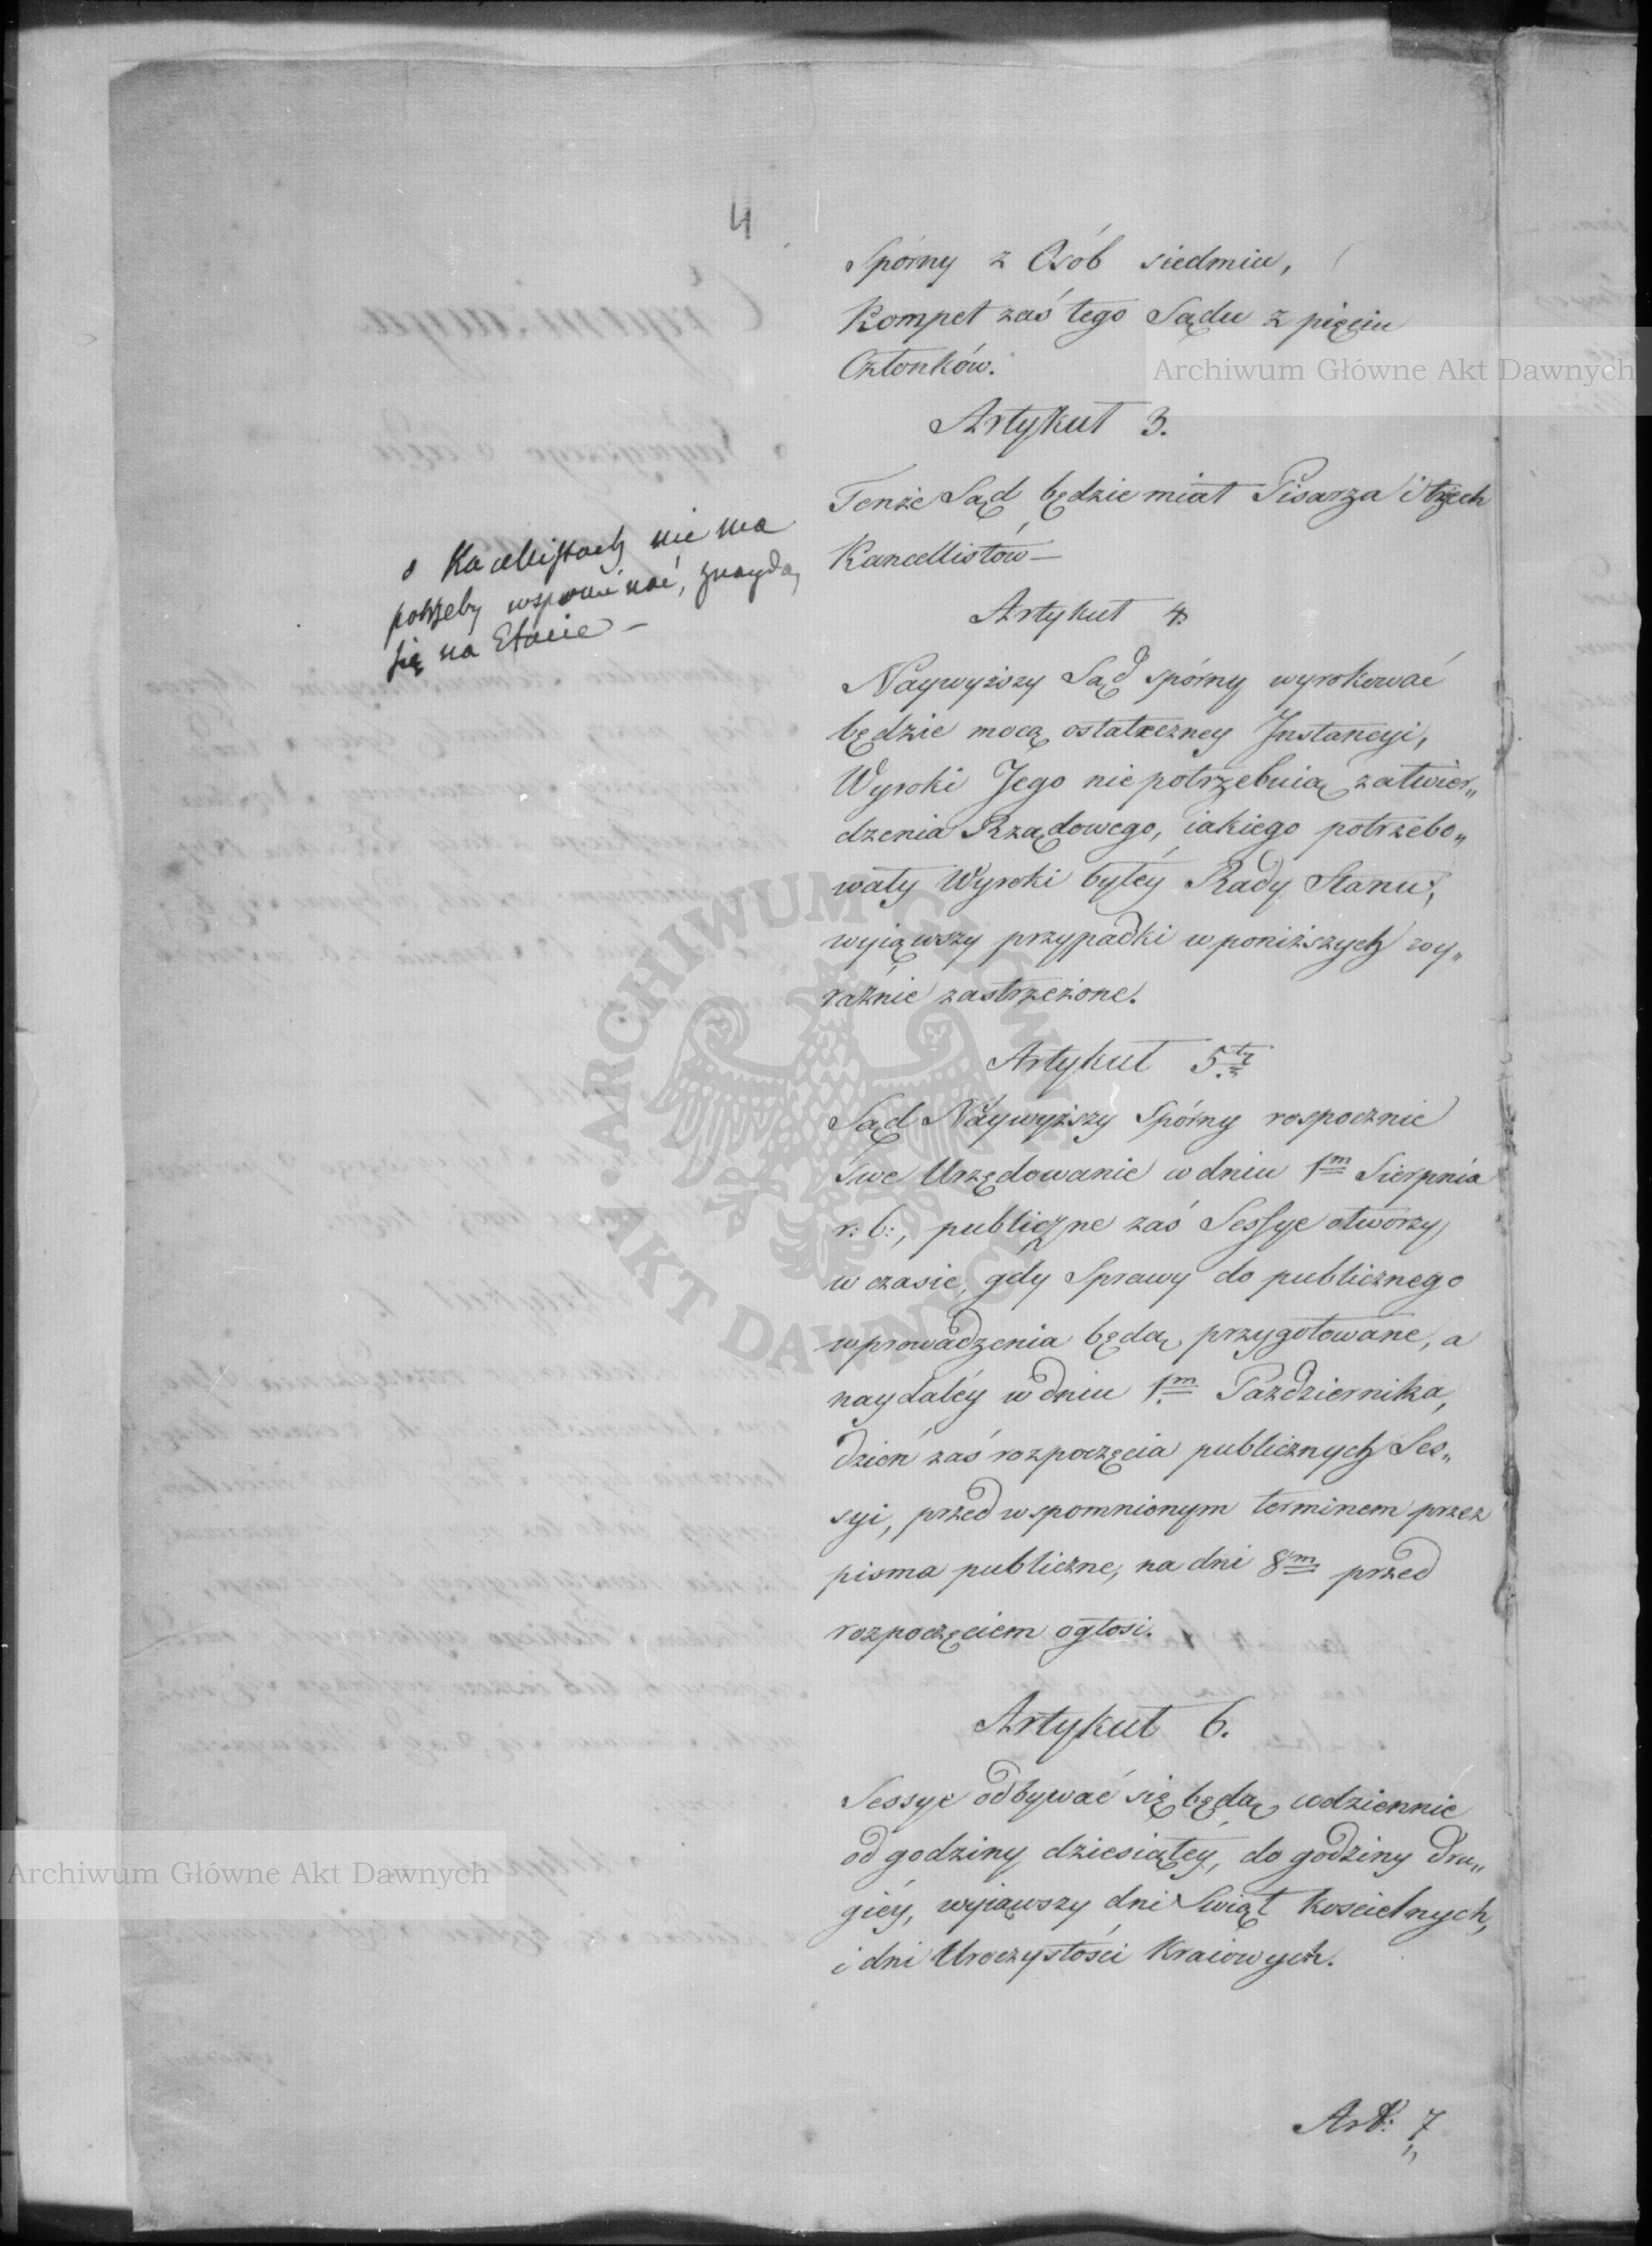 4
Spórny z Osób siedmiu,
Komplet zaś tego Sądu z pięciu
Członków.
Artykuł 3.
Tenże Sąd będzie miał Pisarza i trzech
Kancellistów —
o Kacellistach nie ma
potrzeby wspominać, znaydą
się na Etacie —
Artykuł 4.
Naywyższy Sąd spórny wyrokować
będzie mocą ostateczney Instancyi,
Wyroki Jego nie potrzebuią zatwier„
dzenia Rządowego, iakiego potrzebo„
wały Wyroki byłéy Rady Stanu,
wyiąwszy przypadki w poniższych wy„
raźnie zastrzeżone.
Artykuł 5ty
Sąd Naywyższy Spórny rospocznie
Swe Urzędowanie w dniu 1m Sierpnia
r: b:, publiczne zaś Sessye otworzy
w czasie, gdy Sprawy do publicznego
wprowadzenia będą przygotowane, a
naydaléy w dniu 1m Października,
dzień zaś rozpoczęcia publicznych Ses„
syi, przed wspomnionym terminem przez
pisma publiczne, na dni 8m przed
rozpoczęciem ogłosi.
Artykuł 6.
Sessye odbywać się będą codziennie
od godziny dziesiątéy, do godziny dru„
giéy, wyiąwszy dni Swiąt Koscielnych,
i dni Uroczystości Kraiowych.
Art: 7
Archiwum Główne Akt Dawnych
Archiwum Główne Akt Dawnych
ARCHIWUM GŁÓWNE AKT DAWNYCH